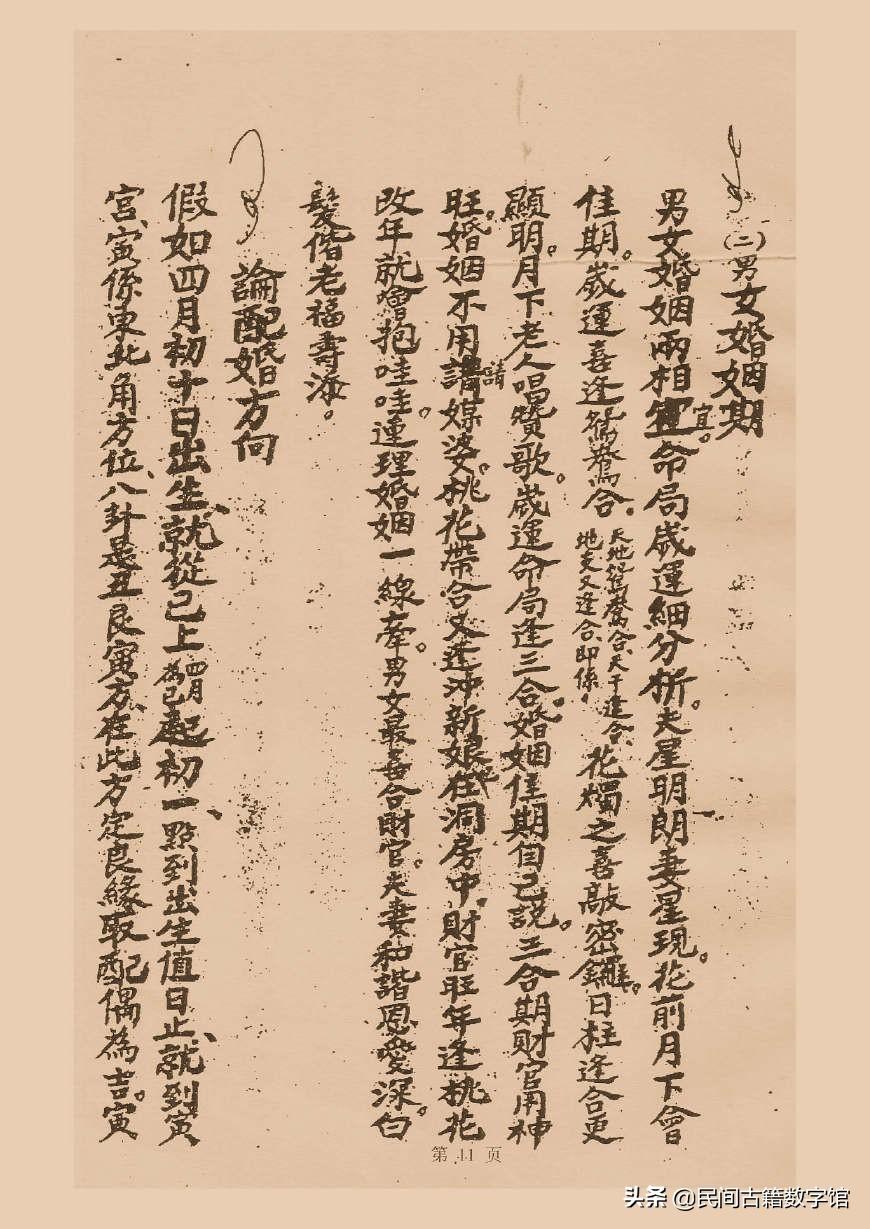 (二)男女婚姻期
男女婚姻兩相宜。命局歲運細分析。夫星明朗妻星現。花前月下會
佳期。歲運喜逢鴛鴦合。天地鴛鴦合、天干逢合、地支又逢合、即係。花燭之喜敲密鑼。日柱逢合更
顯明。月下老人唱贊歌。歲運命局逢三合。婚姻佳期自己説。三合期財官用神
旺。婚姻不用請媒婆。桃花帶合又逢沖新娘在洞房中。財官旺年逢桃花
改年就會抱哇哇。連理婚姻一線牽。男女最喜合財官。夫妻和諧恩愛深。白
髮偕老福壽海。
論配婚方向
假如四月初十日出生、就從已上四月為已起初一、點到出生值日止、就到寅
宮、寅係東北角方位、八卦是丑艮寅方、在此方定良緣取配偶為吉。寅
第 41 页
头条 @民间古籍数字馆